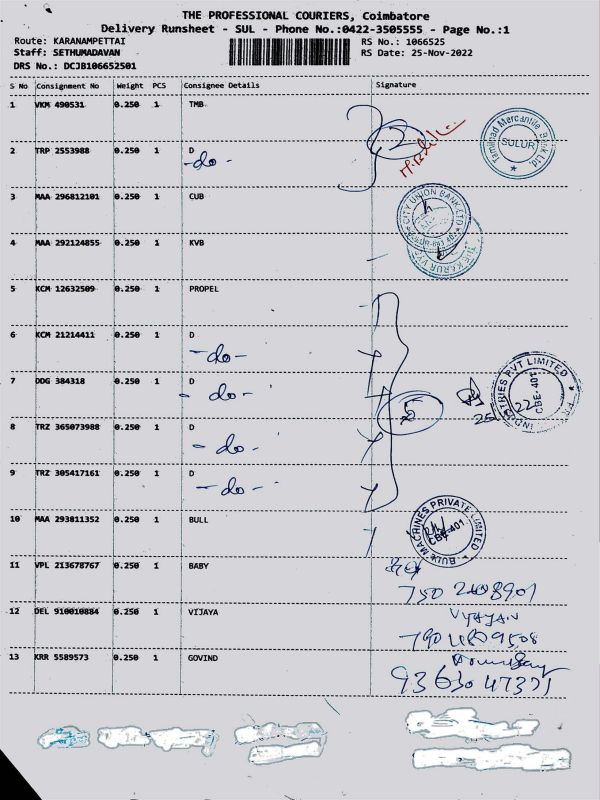 THE PROFESSIONAL COURIERS, Coimbatore
Delivery Runsheet - SUL - Phone No.:0422-3505555 - Page No.:1
Route: KARANAMPETTAI
RS No.: 1066525
Staff: SETHUMADAVAN
RS Date: 25-Nov-2022
DRS No.: DCJB106652501
S No Consignment No Weight PCS Consignee Details Signature
1 VKM 490531 0.250 1 TMB
2 TRP 2553988 0.250 1 D
-do-
2
Tamilnad Mercantile Bank Ltd.
SULUR
3 MAA 296812101 0.250 1 CUB
CITY UNION BANK LTD
4 MAA 292124855 0.250 1 KVB
THE KARUR
5 KCM 12632509 0.250 1 PROPEL
6 KCM 21214411 0.250 1 D
-do-
7 DDG 384318 0.250 1 D
-do-
5
INDUSTRIES PVT LIMITED
CBE-401
8 TRZ 365073988 0.250 1 D
-do-
9 TRZ 305417161 0.250 1 D
-do-
10 MAA 293811352 0.250 1 BULL
BULL MACHINES PRIVATE LIMITED
CBE-401
11 VPL 213678767 0.250 1 BABY
12 DEL 910010884 0.250 1 VIJAYA
13 KRR 5589573 0.250 1 GOVIND